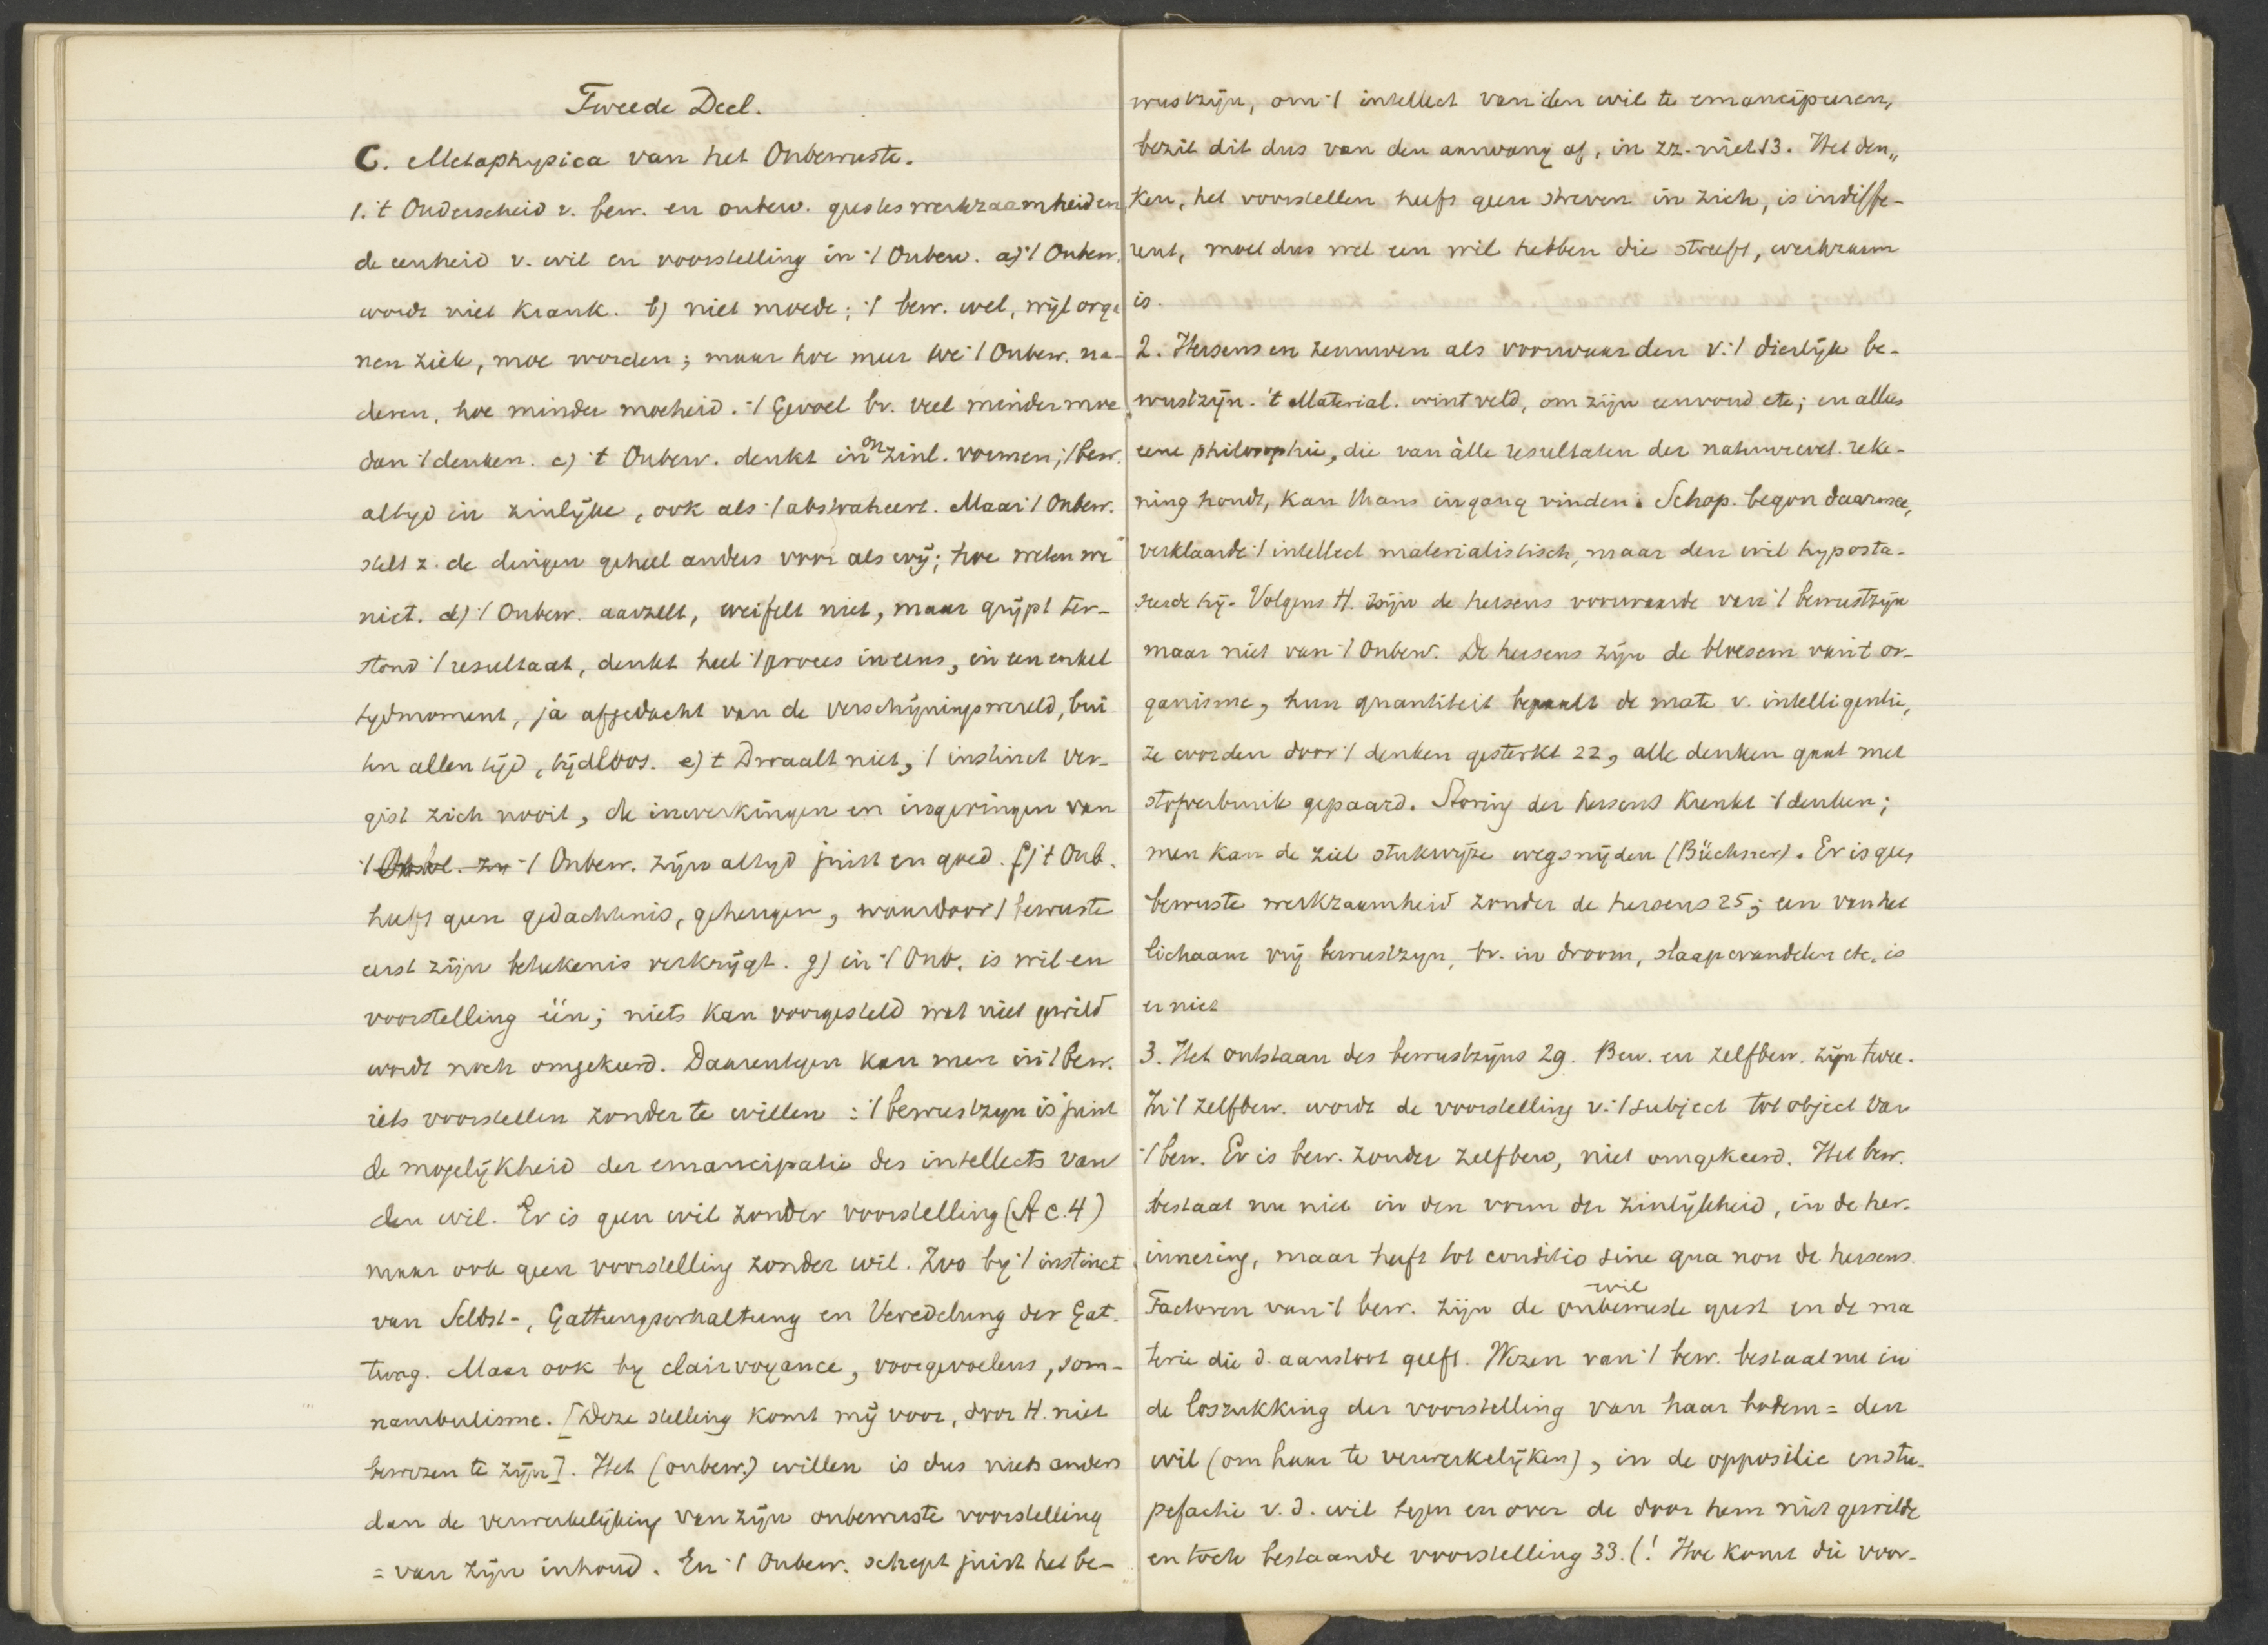 Tweede Deel.
C. Metaphysica van het Onbewuste.
1. 't Onderscheid v. bew. en onbew. geesteswerkzaamheid en
de eenheid v. wil en voorstelling in 't Onbew. a) 't Onbew.
wordt niet krank. b) niet moede; 't bew. wel, wijl orga
nen ziek, moe worden; maar hoe meer we 't Onbew. na-
deren, hoe minder moeheid. 't Gevoel bv. veel minder moe
dan 't denken. c) 't Onbew. denkt in onzinl. vormen; 't bew.
altyd in zinlijke, ook als 't abstraheert. Maar 't Onbew.
stelt z. de dingen geheel anders voor als wij; hoe weten we
niet. d) 't Onbew. aarzelt, weifelt niet, maar grijpt ter-
stond 't resultaat, denkt heel 't proces ineens, in een enkel
tydmoment, ja afgedacht van de verschijningswereld, bui
ten allen tijd, tijdloos. e) 't Dwaalt niet, 't instinct ver-
gist zich nooit, de inwerkingen en ingevingen van
't Onbew. zijn altyd juist en goed. f) 't Onb.
heeft geen gedachtenis, geheugen, waardoor 't bewuste
eerst zijn betekenis verkrijgt. g) in 't Onb. is wil en
voorstelling één; niets kan voorgesteld wat niet gewild
wordt noch omgekeerd. Daarentegen kan men in 't bew.
iets voorstellen zonder te willen: 't bewustzyn is juist
de mogelijkheid der emancipatie des intellects van
den wil. Er is geen wil zonder voorstelling (A c. 4)
maar ook geen voorstelling zonder wil. Zoo by 't instinct
van Selbst-, Gattungserhaltung en Veredelung der Gat-
tung. Maar ook by clairvoyance, voorgevoelens, som-
nambulisme. [Deze stelling komt mij voor, door H. niet
bewezen te zijn]. Het (onbew.) willen is dus niets anders
dan de verwerkelijking van zijn onbewuste voorstelling
= van zijn inhoud. En 't Onbew. schept juist het be-
wustzijn, om 't intellect van den wil te emanciperen,
bezit dit dus van den aanvang af, in zz. niet 13. Het den„
ken, het voorstellen heeft geen streven in zich, is indiffe-
rent, moet dus wel een wil hebben die streeft, werkzaam
is.
2. Hersens en zenuwen als voorwaarden v. 't dierlijk be-
wustzijn. 't Material. wint veld, om zijn eenvoud etc; en alleen
eene philosophie, die van àlle resultaten der natuurwet. reke-
ning houdt, kan thans ingang vinden. Schop. begon daarmee,
verklaarde 't intellect materialistisch, maar den wil hyposta-
seerde hij. Volgens H. zijn de hersens voorwaarde van 't bewustzijn
maar niet van 't Onbew. De hersens zijn de bloesem van 't or-
ganisme, hun quantiteit bepaalt de mate v. intelligentie,
ze worden door 't denken gesterkt 22, alle denken gaat met
stofverbruik gepaard. Storing der hersens krenkt 't denken;
men kan de ziel stukwijze wegsnijden (Büchner). Er is geen
bewuste werkzaamheid zonder de hersens 25; een van het
lichaam vrij bewustzyn, bv. in droom, slaapwandelen etc. is
er niet
3. Het ontstaan des bewustzijns 29. Bew. en zelfbew. zijn twee.
In 't zelfbew. wordt de voorstelling v. 't subject tot object van
't bew. Er is bew. zonder zelfbew, niet omgekeerd. Het bew.
bestaat nu niet in den vorm der zinlijkheid, in de her-
innering, maar heeft tot conditio sine qua non de hersens.
Factoren van 't bew. zijn de onbewuste wil geest en de ma
terie die d. aanstoot geeft. Wezen van 't bew. bestaat nu in
de losrukking der voorstelling van haar bodem = den
wil (om haar te verwerkelijken), in de oppositie en stu-
pefactie v. d. wil tegen en over de door hem niet gewilde
en toch bestaande voorstelling 33. (! Hoe komt die voor-